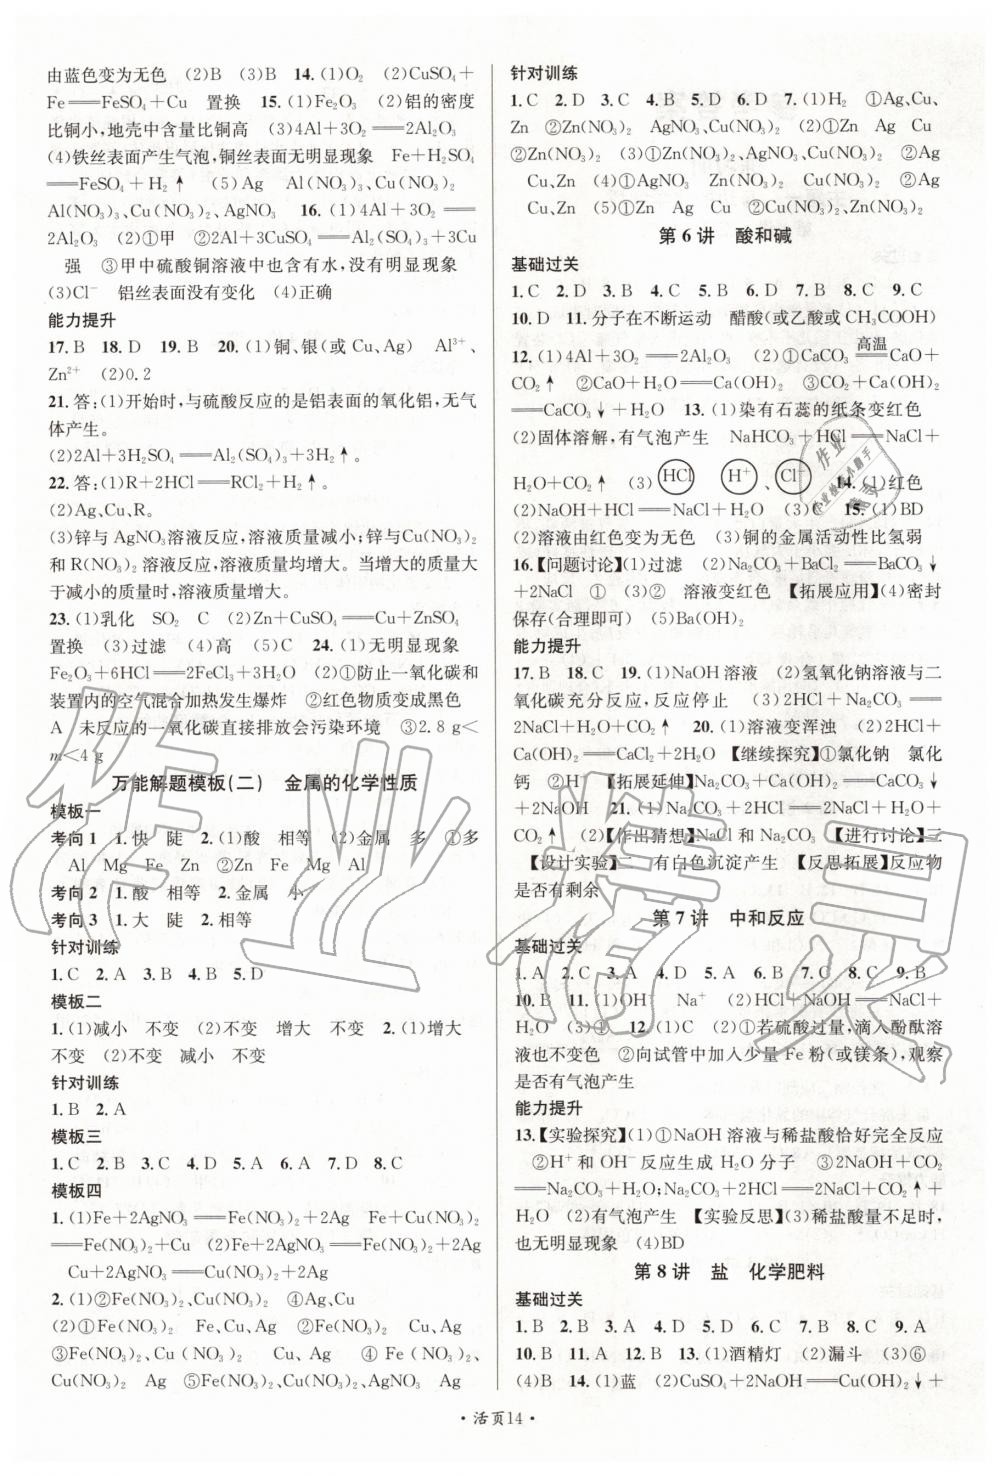 由蓝色变为无色 (2)B (3)B 14.(1)O₂ (2)CuSO₄+
Fe══FeSO₄+Cu 置换 15.(1)Fe₂O₃ (2)铝的密度
比铜小,地壳中含量比铜高 (3)4Al+3O₂══2Al₂O₃
(4)铁丝表面产生气泡,铜丝表面无明显现象 Fe+H₂SO₄
══FeSO₄+H₂↑ (5)Ag Al(NO₃)₃、Cu(NO₃)₂
Al(NO₃)₃、Cu(NO₃)₂、AgNO₃ 16.(1)4Al+3O₂══
2Al₂O₃ (2)①甲 ②2Al+3CuSO₄══Al₂(SO₄)₃+3Cu
强 ③甲中硫酸铜溶液中也含有水,没有明显现象
(3)Cl⁻ 铝丝表面没有变化 (4)正确
能力提升
17.B 18.D 19.B 20.(1)铜、银(或Cu、Ag) Al³⁺、
Zn²⁺ (2)0.2
21.答:(1)开始时,与硫酸反应的是铝表面的氧化铝,无气
体产生。
(2)2Al+3H₂SO₄══Al₂(SO₄)₃+3H₂↑。
22.答:(1)R+2HCl══RCl₂+H₂↑。
(2)Ag、Cu、R。
(3)锌与AgNO₃溶液反应,溶液质量减小;锌与Cu(NO₃)₂
和R(NO₃)₂溶液反应,溶液质量均增大。当增大的质量大
于减小的质量时,溶液质量增大。
23.(1)乳化 SO₂ C (2)Zn+CuSO₄══Cu+ZnSO₄
置换 (3)过滤 (4)高 (5)C 24.(1)无明显现象
Fe₂O₃+6HCl══2FeCl₃+3H₂O (2)①防止一氧化碳和
装置内的空气混合加热发生爆炸 ②红色物质变成黑色
A 未反应的一氧化碳直接排放会污染环境 ③2.8 g<
m<4 g
万能解题模板(二) 金属的化学性质
模板一
考向1 1.快 陡 2.(1)酸 相等 (2)金属 多 ①多
Al Mg Fe Zn ②Zn Fe Mg Al
考向2 1.酸 相等 2.金属 小
考向3 1.大 陡 2.相等
针对训练
1.C 2.A 3.B 4.B 5.D
模板二
1.(1)减小 不变 (2)不变 增大 不变 2.(1)增大
不变 (2)不变 减小 不变
针对训练
1.B 2.A
模板三
1.C 2.B 3.C 4.D 5.A 6.A 7.D 8.C
模板四
1.(1)Fe+2AgNO₃══Fe(NO₃)₂+2Ag Fe+Cu(NO₃)₂
══Fe(NO₃)₂+Cu (2)Fe+2AgNO₃══Fe(NO₃)₂+2Ag
Cu+2AgNO₃══Cu(NO₃)₂+2Ag
2.(1)②Fe(NO₃)₂、Cu(NO₃)₂ ④Ag、Cu
(2)①Fe(NO₃)₂ Fe、Cu、Ag ②Fe(NO₃)₂ Cu、Ag
③Fe(NO₃)₂、Cu(NO₃)₂ Cu、Ag ④Fe(NO₃)₂、
Cu(NO₃)₂ Ag ⑤Fe(NO₃)₂、Cu(NO₃)₂、AgNO₃ Ag
针对训练
1.C 2.D 3.C 4.B 5.D 6.D 7.(1)H₂ ①Ag、Cu、
Zn ②Zn(NO₃)₂ AgNO₃、Cu(NO₃)₂ (2)①Zn Ag Cu
②Zn(NO₃)₂ (3)①Zn(NO₃)₂、AgNO₃、Cu(NO₃)₂ ②Ag
Cu、Zn (4)①AgNO₃ Zn(NO₃)₂ Cu(NO₃)₂ ②Ag
Cu、Zn (5)①Zn Ag Cu ②Cu(NO₃)₂、Zn(NO₃)₂
第6讲 酸和碱
基础过关
1.C 2.D 3.B 4.C 5.B 6.D 7.B 8.C 9.C
10.D 11.分子在不断运动 醋酸(或乙酸或CH₃COOH)
12.(1)4Al+3O₂══2Al₂O₃ (2)①CaCO₃═高温═CaO+
CO₂↑ ②CaO+H₂O══Ca(OH)₂ ③CO₂+Ca(OH)₂
══CaCO₃↓+H₂O 13.(1)染有石蕊的纸条变红色
(2)固体溶解,有气泡产生 NaHCO₃+HCl══NaCl+
H₂O+CO₂↑ (3)HCl H⁺、Cl⁻ 14.(1)红色
(2)NaOH+HCl══NaCl+H₂O (3)C 15.(1)BD
(2)溶液由红色变为无色 (3)铜的金属活动性比氢弱
16.【问题讨论】(1)过滤 (2)Na₂CO₃+BaCl₂══BaCO₃↓
+2NaCl ① (3)② 溶液变红色 【拓展应用】(4)密封
保存(合理即可) (5)Ba(OH)₂
能力提升
17.B 18.C 19.(1)NaOH溶液 (2)氢氧化钠溶液与二
氧化碳充分反应,反应停止 (3)2HCl+Na₂CO₃══
2NaCl+H₂O+CO₂↑ 20.(1)溶液变浑浊 (2)2HCl+
Ca(OH)₂══CaCl₂+2H₂O 【继续探究】①氯化钠 氯化
钙 ②H⁺ 【拓展延伸】Na₂CO₃+CaCl₂══CaCO₃↓
+2NaOH 21.(1)Na₂CO₃+2HCl══2NaCl+H₂O+
CO₂↑ (2)【作出猜想】NaCl和Na₂CO₃ 【进行讨论】三
【设计实验】二 有白色沉淀产生 【反思拓展】反应物
是否有剩余
第7讲 中和反应
基础过关
1.A 2.C 3.A 4.D 5.A 6.B 7.C 8.C 9.B
10.B 11.(1)OH⁻ Na⁺ (2)HCl+NaOH══NaCl+
H₂O (3) 12.(1)C (2)①若硫酸过量,滴入酚酞溶
液也不变色 ②向试管中加入少量Fe粉(或镁条),观察
是否有气泡产生
能力提升
13.【实验探究】(1)①NaOH溶液与稀盐酸恰好完全反应
②H⁺和OH⁻反应生成H₂O分子 ③2NaOH+CO₂
══Na₂CO₃+H₂O;Na₂CO₃+2HCl══2NaCl+CO₂↑+
H₂O (2)有气泡产生 【实验反思】(3)稀盐酸量不足时,
也无明显现象 (4)BD
第8讲 盐 化学肥料
基础过关
1.B 2.B 3.A 4.D 5.D 6.B 7.A 8.C 9.A
10.B 11.A 12.B 13.(1)酒精灯 (2)漏斗 (3)⑥
(4)B 14.(1)蓝 (2)CuSO₄+2NaOH══Cu(OH)₂↓+
·活页14·
作业精灵